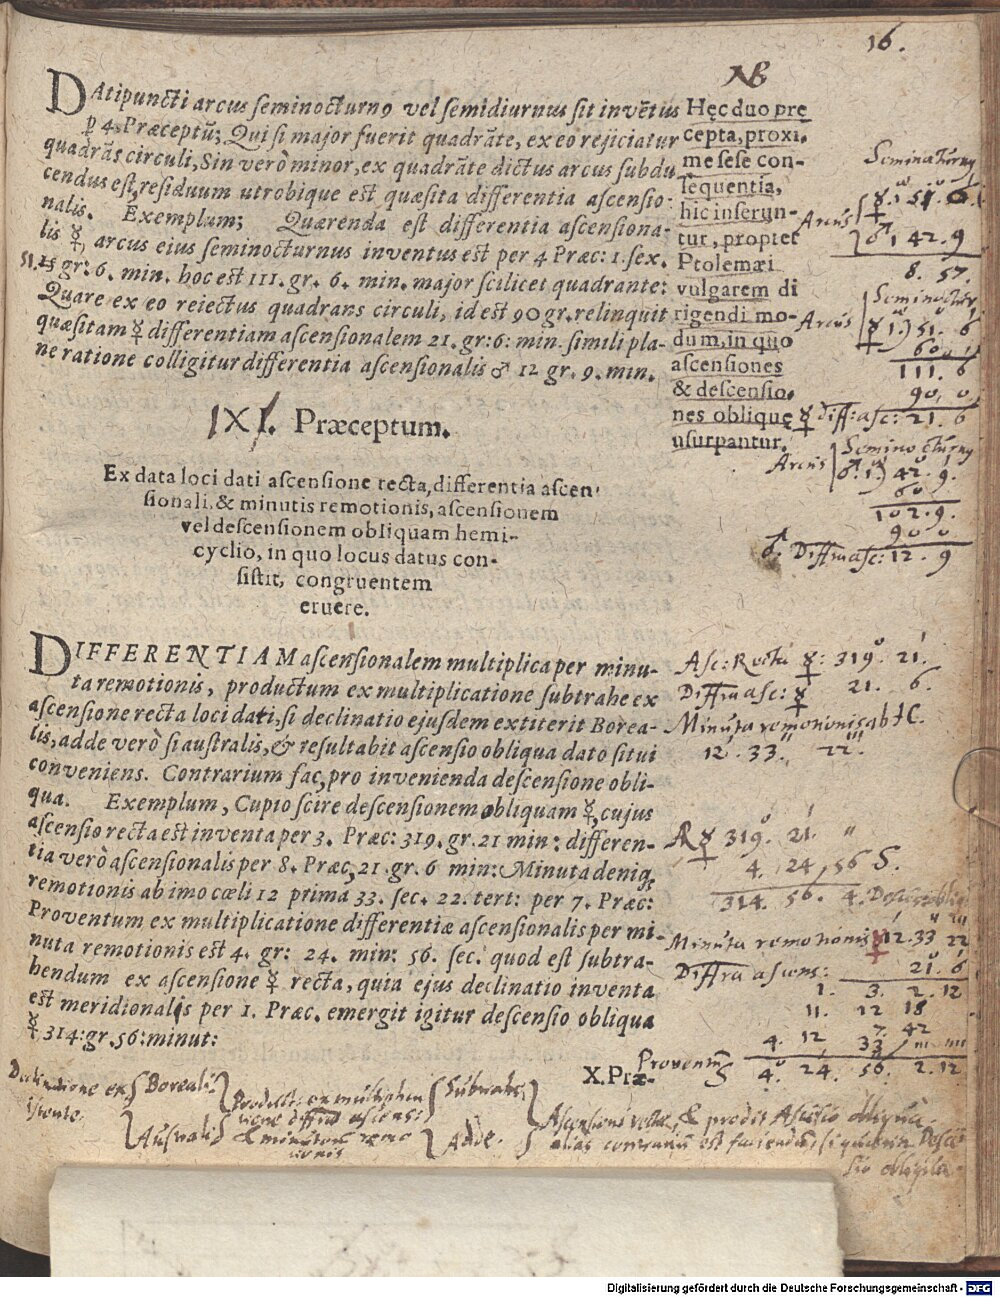 16.
NB
DAtipuncti arcus seminocturn9 vel semidiurnus sit invẽtus
ꝑ 4. Præceptũ; Qui si major fuerit quadrãte, ex eo rejiciatur
quadrãs circuli, Sin verò minor, ex quadrãte dictus arcus subdu
cendus est, residuum utrobique est quæsita differentia ascensio-
nalis. Exemplum; Quærenda est differentia ascensiona-
lis ☿, arcus eius seminocturnus inventus est per 4 Præc: 1. sex.
51. 15 gr: 6. min. hoc est 111. gr. 6. min. major scilicet quadrante:
Quare ex eo reiectus quadrans circuli, id est 90 gr. relinquit
quæsitam ☿ differentiam ascensionalem 21. gr: 6: min. simili pla-
ne ratione colligitur differentia ascensionalis ♂ 12 gr. 9. min.
Hęc duo pre
cepta, proxi.
me sese con-
sequentia,
hic inserun-
tur, propter
Ptolemæi
vulgarem di
rigendi mo-
dum, in quo
ascensiones
& descensio.
nes oblique
usurpantur.
Arcus
☿. 1. 51. 6.
♂. 1. 42. 9
8. 57.
Arcus
☿ 1. 51. 6
60
111. 6
90. 0
☿ Diff: asc: 21. 6
Seminocturn9
Arcus ♂. 1. 42. 9.
60
102. 9.
90 0
♂. Diffra asc: 12. 9
IXI. Præceptum.
Ex data loci dati ascensione recta, differentia ascen-
sionali, & minutis remotionis, ascensionem
vel descensionem obliquam hemi-
cyclio, in quo locus datus con-
sistit, congruentem
eruere.
DIFFERENTIAM ascensionalem multiplica per minu-
ta remotionis, productum ex multiplicatione subtrahe ex
ascensione recta loci dati, si declinatio ejusdem extiterit Borea-
lis, adde verò si australis, & resultabit ascensio obliqua dato situi
conveniens. Contrarium fac, pro invenienda descensione obli-
qua. Exemplum, Cupio scire descensionem obliquam ☿, cujus
ascensio recta est inventa per 3. Præc: 319. gr. 21 min: differen-
tia verò ascensionalis per 8. Præc, 21. gr. 6 min: Minuta deniq;
remotionis ab imo cæli 12 prima 33. sec. 22. tert: per 7. Præc:
Proventum ex multiplicatione differentiæ ascensionalis per mi-
nuta remotionis est 4. gr: 24. min: 56. sec. quod est subtra-
hendum ex ascensione ☿ recta, quia ejus declinatio inventa
est meridionalis per 1. Præc. emergit igitur descensio obliqua
☿ 314: gr. 56: minut:
X. Præ-
Asc: Recta ☿: 319. 21.
Diffra asc: ☿ 21. 6.
Minuta remotionis ab IC.
12. 33. 22.
AR ☿ 319. 21.
4. 24, 56 S.
314. 56. 4. Descens obliq
Minuta remotionis ☿ 12. 33 22
Diffra ascens: 21. 6
1. 3. 2. 12
11. 12 18
7. 42
4. 12 33
Proventus 4. 24. 56. 2. 12
Declinatione ex
istente.
Boreali
Australi
Product: ex multiplica
tione diffræ ascens:
& minutorum remo
tionis
Subtrahe,
Adde.
Ascensioni rectæ, & prodit Ascensio obliqua
alias contrarium est faciendum, si quæritur Descen
sio obliqua.
Digitalisierung gefördert durch die Deutsche Forschungsgemeinschaft - DFG